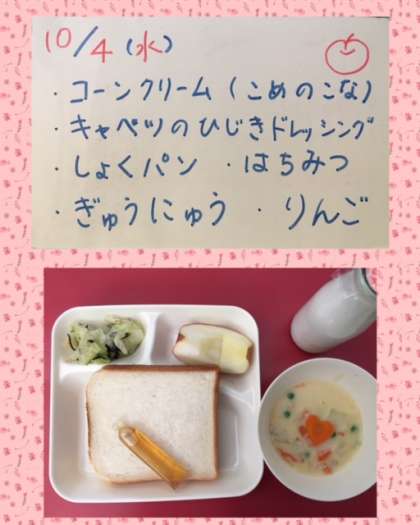 10/4(水)
・コーンクリーム(こめのこな)
・キャベツのひじきドレッシング
・しょくパン ・はちみつ
・ぎゅうにゅう ・りんご